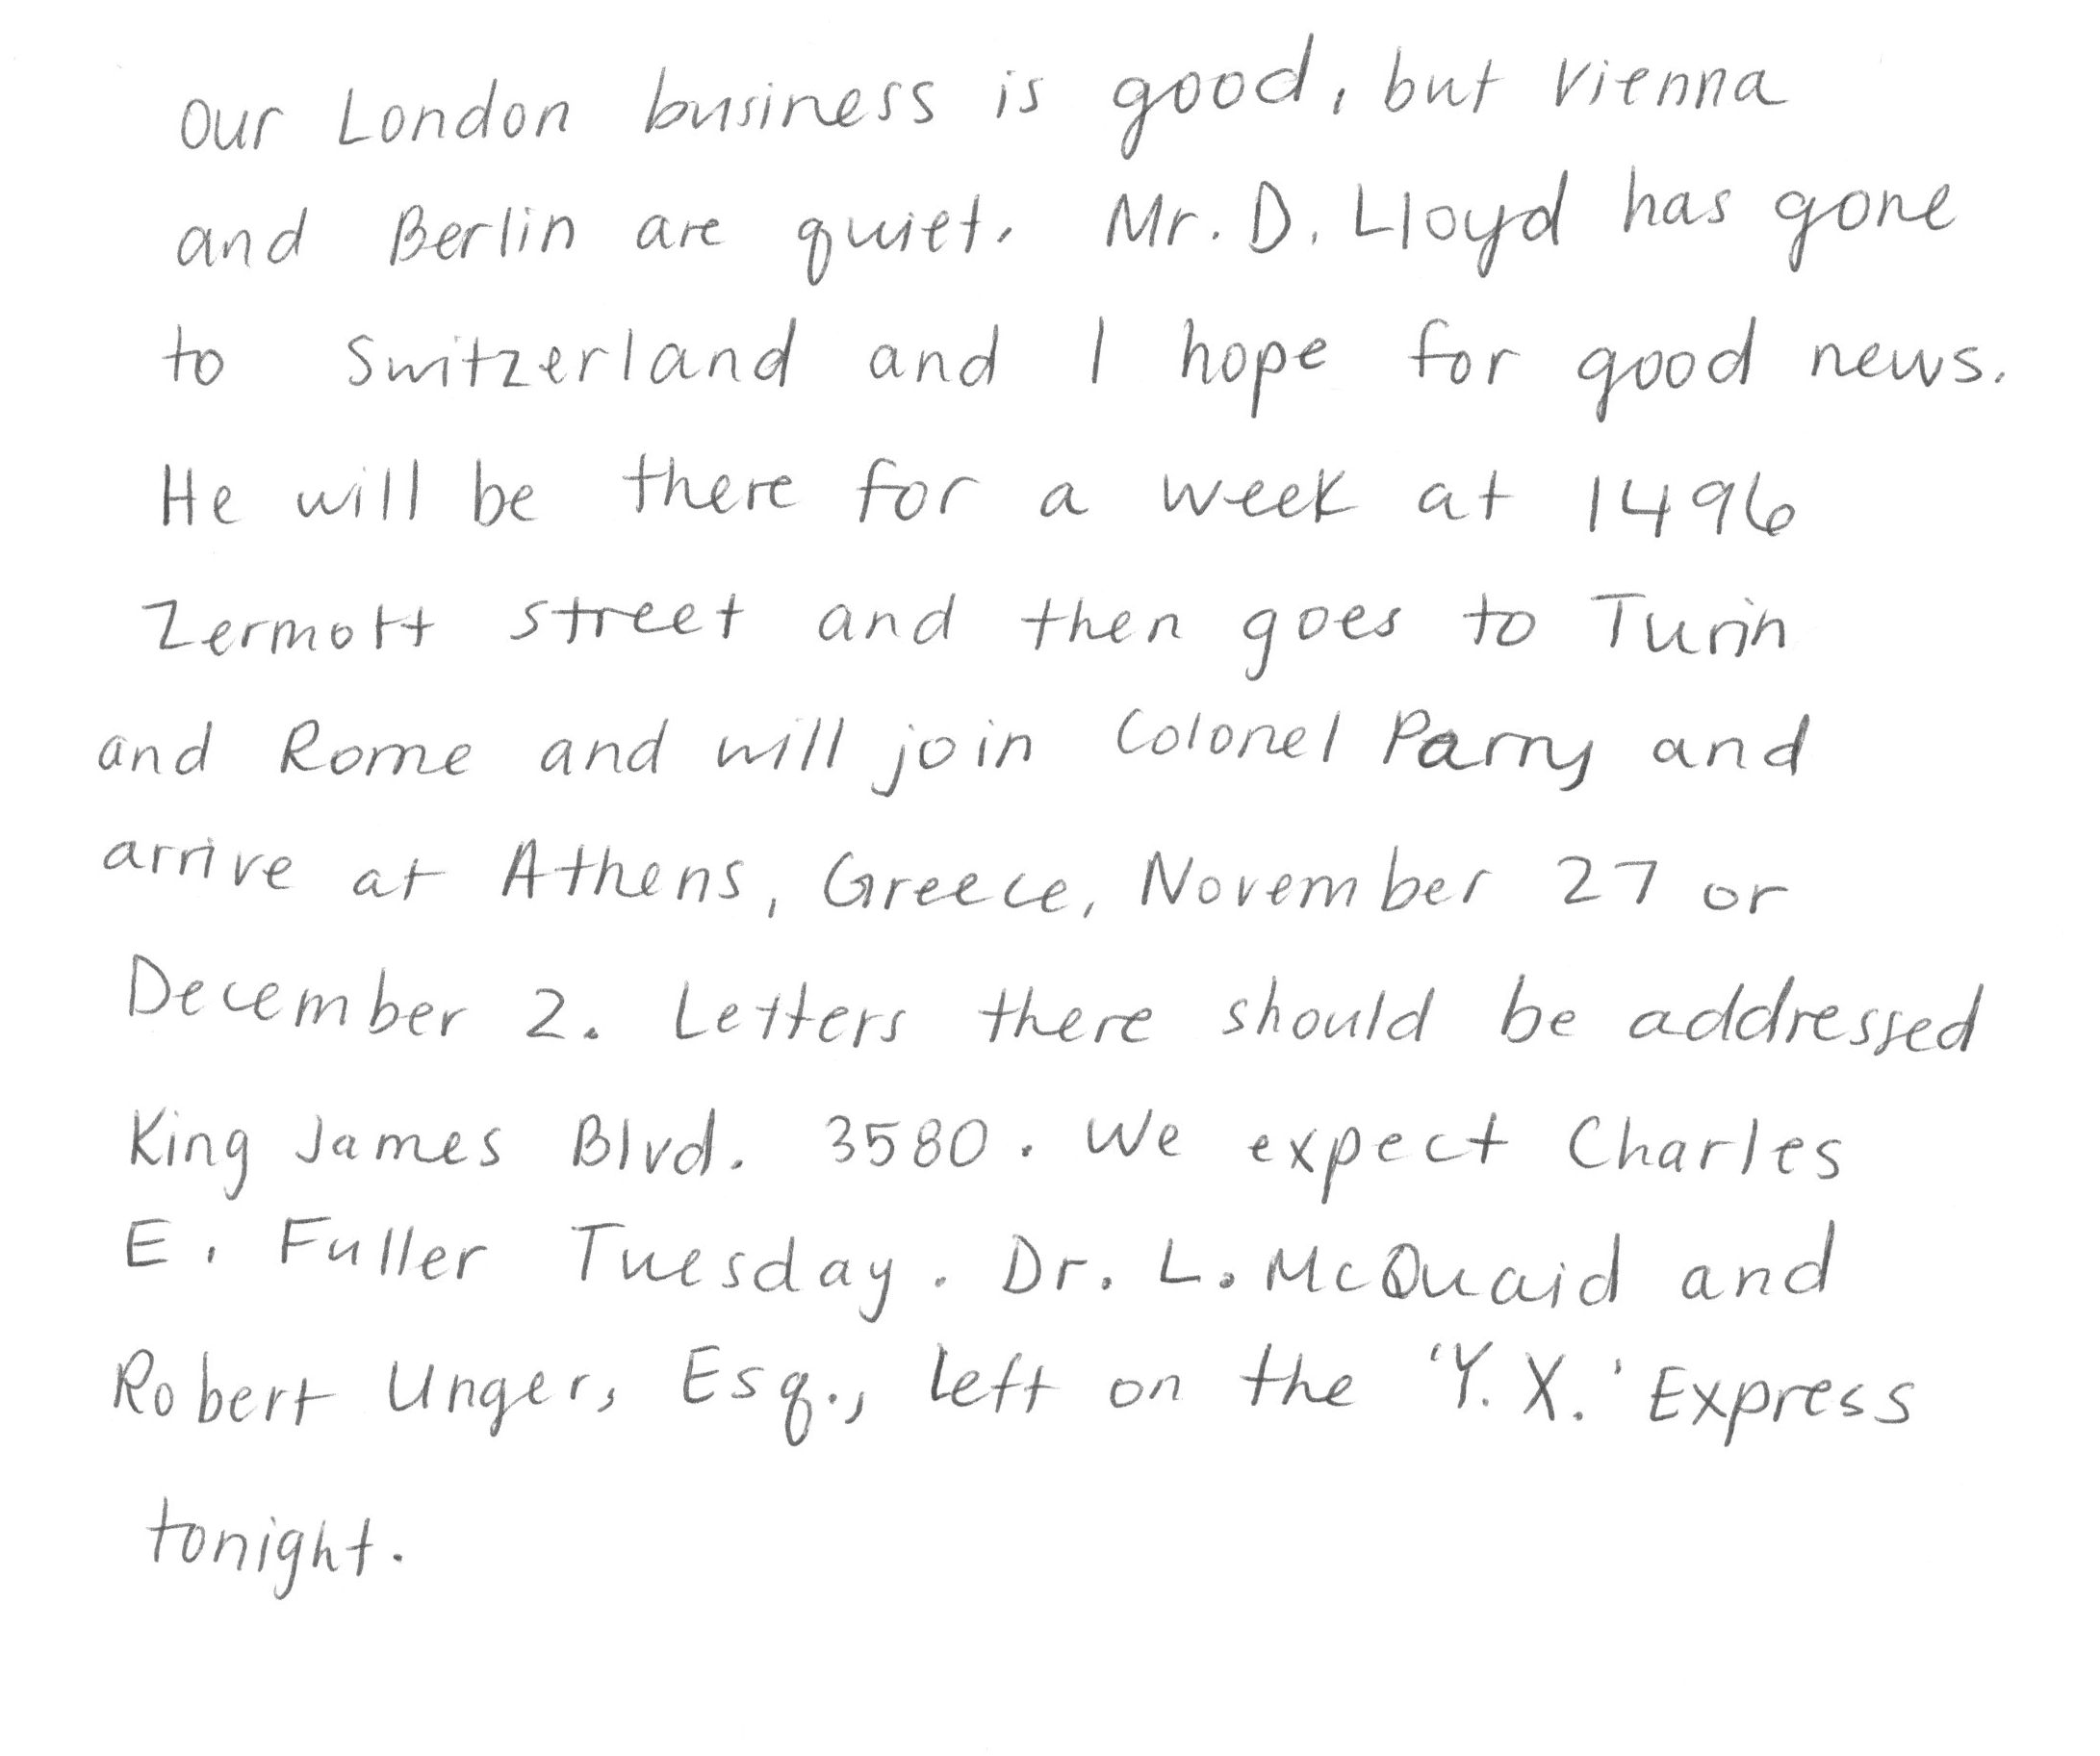 Our London business is good, but Vienna
and Berlin are quiet. Mr. D. Lloyd has gone
to Switzerland and I hope for good news.
He will be there for a week at 1496
Zermott street and then goes to Turin
and Rome and will join Colonel Parry and
arrive at Athens, Greece, November 27 or
December 2. Letters there should be addressed
King James Blvd. 3580. We expect Charles
E. Fuller Tuesday. Dr. L. McQuaid and
Robert Unger, Esq., left on the 'Y.X.' Express
tonight.